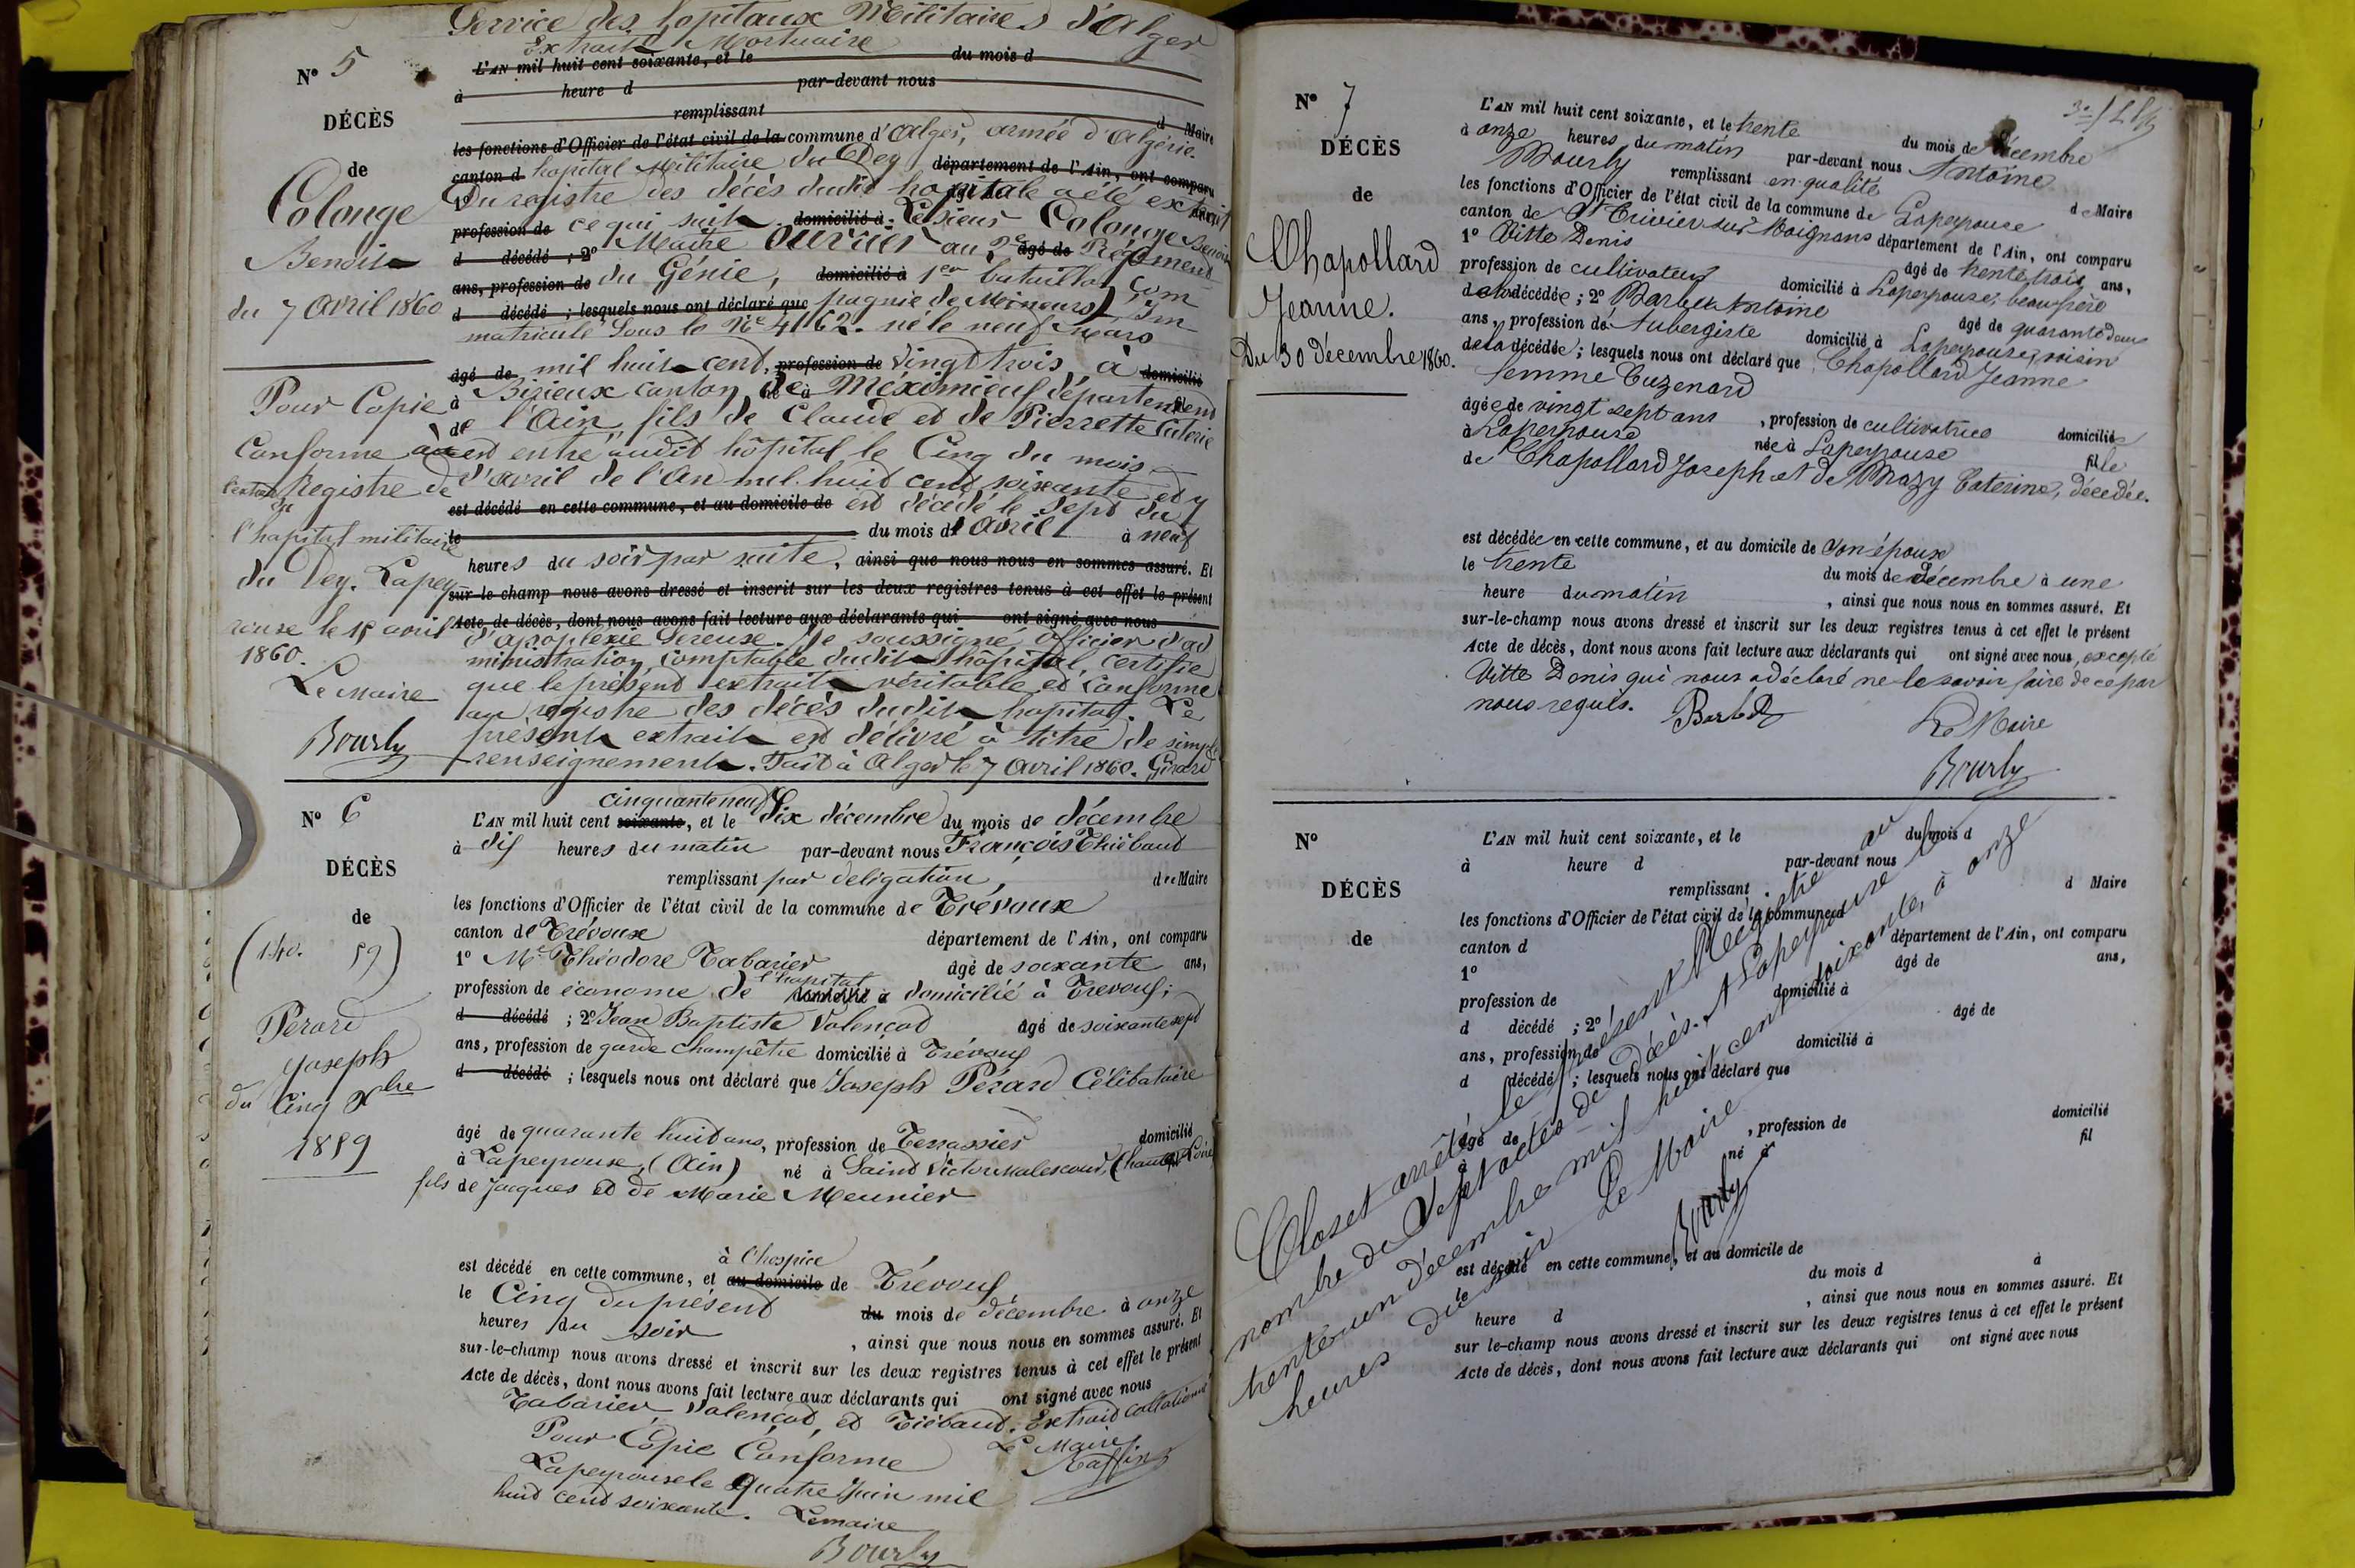 Service des hopitaux Militaires d'Alger
Extrait Mortuaire
N° 5
L'AN mil huit cent soixante, et le du mois d
à heure d par-devant nous
remplissant d Maire
DÉCÈS
les fonctions d'Officier de l'état civil de la commune d'Alger, armée d'Algérie.
de
canton d hopital Militaire du Dey département de l'Ain, ont comparu
Colonge
1° Du registre des décès dudit hopitale a été extrait
profession de ce qui suit domicilié à Le sieur Colonge Benoit
Benoit
d décédé ; 2° Maitre ouvrier au 2e âgé de Régiment
ans, profession de du Génie, domicilié à 1er bataillon Com
du 7 Avril 1860
d décédé ; lesquels nous ont déclaré que pagnie de Mineurs Im
matricule sous le N° 4162. né le neuf Mars
âgé de mil huit cent, profession de vingt trois, à domicilié
Pour Copie
à Birieux canton de né à Méximieux département
de l'Ain, fils de Claude et de Pierrette
Conforme à
est entré audit hôpital le Cinq du mois
Registre de
d'avril de l'An mil huit cent soixante et y
est décédé en cette commune, et au domicile de est décédé le sept du
l'hapital militaire
le du mois d'Avril à neuf
heures du soir par suite, ainsi que nous nous en sommes assuré. Et
du Dey. Lapey
sur-le-champ nous avons dressé et inscrit sur les deux registres tenus à cet effet le présent
Acte de décès, dont nous avons fait lecture aux déclarants qui ont signé avec nous
rouse le avril
d'apoplexie Sereuse. Je soussigné, officier d'ad
1860.
ministration, comptable dudit hôpital, certifie
Le Maire
que le présent extrait véritable et Conforme
au registre des décès dudit hopital. Le
Bourly
présent extrait est délivré à titre de simple
renseignement. Fait à Alger le 7 Avril 1860. Girard
N° 6
cinquante neuf
L'AN mil huit cent soixante, et le Dix décembre du mois de décembre
à dix heures du matin par-devant nous François Thiébaud
DÉCÈS
remplissant par deligation, de Maire
les fonctions d'Officier de l'état civil de la commune de Trévoux
de
canton de Trévoux département de l'Ain, ont comparu
(140. 59)
1° Mr Théodore Tabarier âgé de soixante ans,
profession de économe de l'hopital domicilié à domicilié à Trevoux;
Perard
d décédé ; 2° Jean Baptiste Valençod âgé de soixante sept
Joseph
ans, profession de garde champêtre domicilié à Trévoux
d décédé ; lesquels nous ont déclaré que Joseph Pérard Célibataire
du Cinq Xbre
1859
âgé de quarante huit ans, profession de Terrassier domicilié
à Lapeyrouse, (Ain) né à Saint Victor Malescour, (Haute Loire)
fils de Jacques et de Marie Meunier
à l'hospice
est décédé en cette commune, et au domicile de Trévoux
le Cinq du présent du mois de décembre à onze
heures du soir, ainsi que nous nous en sommes assuré. Et
sur-le-champ nous avons dressé et inscrit sur les deux registres tenus à cet effet le présent
Acte de décès, dont nous avons fait lecture aux déclarants qui ont signé avec nous
Tabarier, Valençod, et Tiébaud. Extrait collationné
Pour Copie Conforme Le Maire
Lapeyrouse le quatre Juin mil Raffin
huit cent soixante. Le maire
Bourly
N° 7
L'AN mil huit cent soixante, et le trente du mois de décembre
à onze heures du matin par-devant nous Antoine
DÉCÈS
Bourly remplissant en qualité de Maire
les fonctions d'Officier de l'état civil de la commune de Lapeyrouse
de
canton de St Trivier sur Moignans département de l'Ain, ont comparu
Chapollard
1° Vitte Denis âgé de trente trois ans,
profession de cultivateur domicilié à Lapeyrouse, beau frère
Jeanne.
de la décédée ; 2° Barbet Antoine âgé de quarante deux
ans, profession de Aubergiste domicilié à Lapeyrouse, voisin
Du 30 décembre 1860.
de la décédée ; lesquels nous ont déclaré que Chapollard Jeanne
femme Cuzenard
âgée de vingt sept ans, profession de cultivatrice domiciliée
à Lapeyrouse née à Lapeyrouse fille
de Chapollard Joseph et de Mazy Caterine, décedée.
est décédée en cette commune, et au domicile de son épouse
le trente du mois de décembre à une
heure du matin, ainsi que nous nous en sommes assuré. Et
sur-le-champ nous avons dressé et inscrit sur les deux registres tenus à cet effet le présent
Acte de décès, dont nous avons fait lecture aux déclarants qui ont signé avec nous, excepté
Vitte Denis qui nous a déclaré ne le savoir faire de ce par
nous requis. Barbet Le Maire
Bourly
N°
L'AN mil huit cent soixante, et le du mois d
à heure d par-devant nous
DÉCÈS
remplissant d Maire
les fonctions d'Officier de l'état civil de la commune d
de
canton d département de l'Ain, ont comparu
1° âgé de ans,
profession de domicilié à
d décédé ; 2° âgé de
ans, profession de domicilié à
d décédé ; lesquels nous ont déclaré que
âgé de , profession de domicilié
à né à fil
Clos et arrêté le présent Registre au
nombre de Sept actes de décès. A Lapeyrouse le
trente un décembre mil huit cent soixante, à onze
heures du soir Le Maire
Bourly
est décédé en cette commune, et au domicile de
le du mois d à
heure d , ainsi que nous nous en sommes assuré. Et
sur-le-champ nous avons dressé et inscrit sur les deux registres tenus à cet effet le présent
Acte de décès, dont nous avons fait lecture aux déclarants qui ont signé avec nous